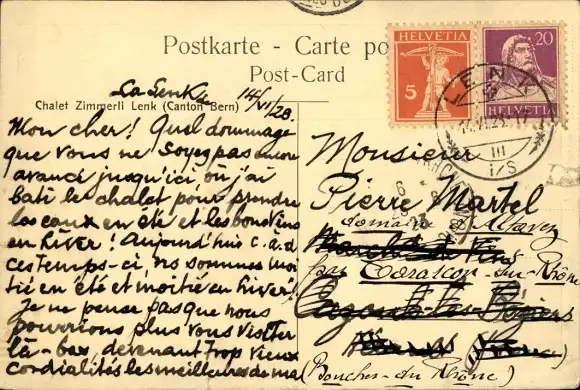 Postkarte - Carte po
Post-Card
HELVETIA
5
20
HELVETIA
LENK
III
i/S
La Lenk, 14/VI/28.
Chalet Zimmerli Lenk (Canton Bern)
Mon cher! Quel dommage
que vous ne soyez pas
avancé jusqu'ici où j'ai
bâti le chalet pour prendre
les eaux en été et les bons vins
en hiver! Aujourd'hui c.à.d
ces temps-ci, nos sommes moi
tié en été et moitié en hiver!
Je ne pense pas que nous
pourrions plus vous visiter
là-bas, devenant trop vieux
cordialités les meilleures de ma
Monsieur
Pierre Martel
domaine
Marchand de Vins
par Tarascon-du-Rhône
(Bouches-du-Rhône)